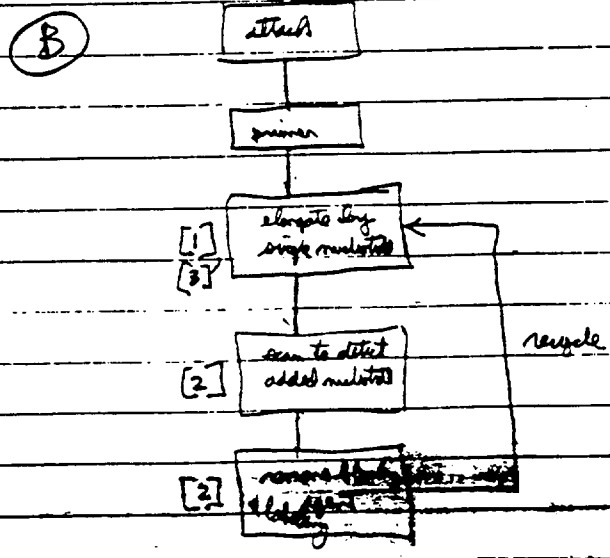 B
attach
primer
elongate by
single nucleotide
[1]
[3]
scan to detect
added nucleotide
[2]
recycle
remove
[2]
& labeling